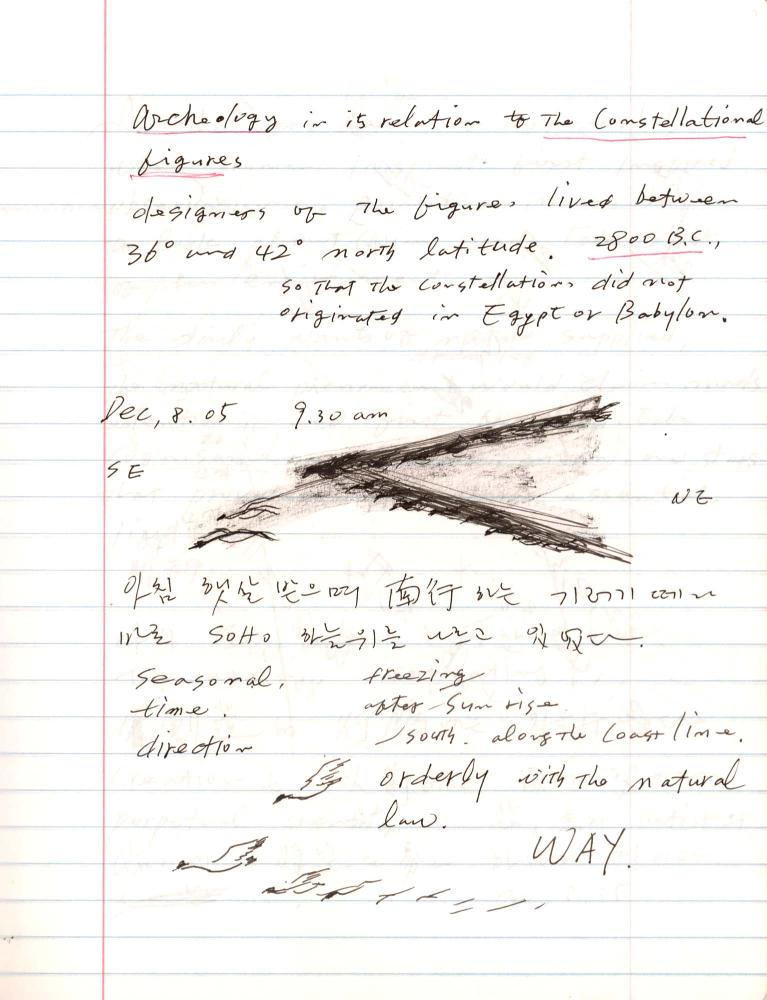 Archeology in its relation to The Constellational
figures
designers of The figures lived between
36° and 42° north latitude. 2800 B.C.,
so that The Constellations did not
originated in Egypt or Babylon.
Dec, 8. 05 9.30 am
SE
NE
아침 햇살 받으며 南行 하는 기러기 떼가
바로 SoHo 하늘위를 나르고 있었다.
seasonal, freezing
time. after Sun rise
direction south. along The Coast line.
orderly with The natural
law.
WAY.